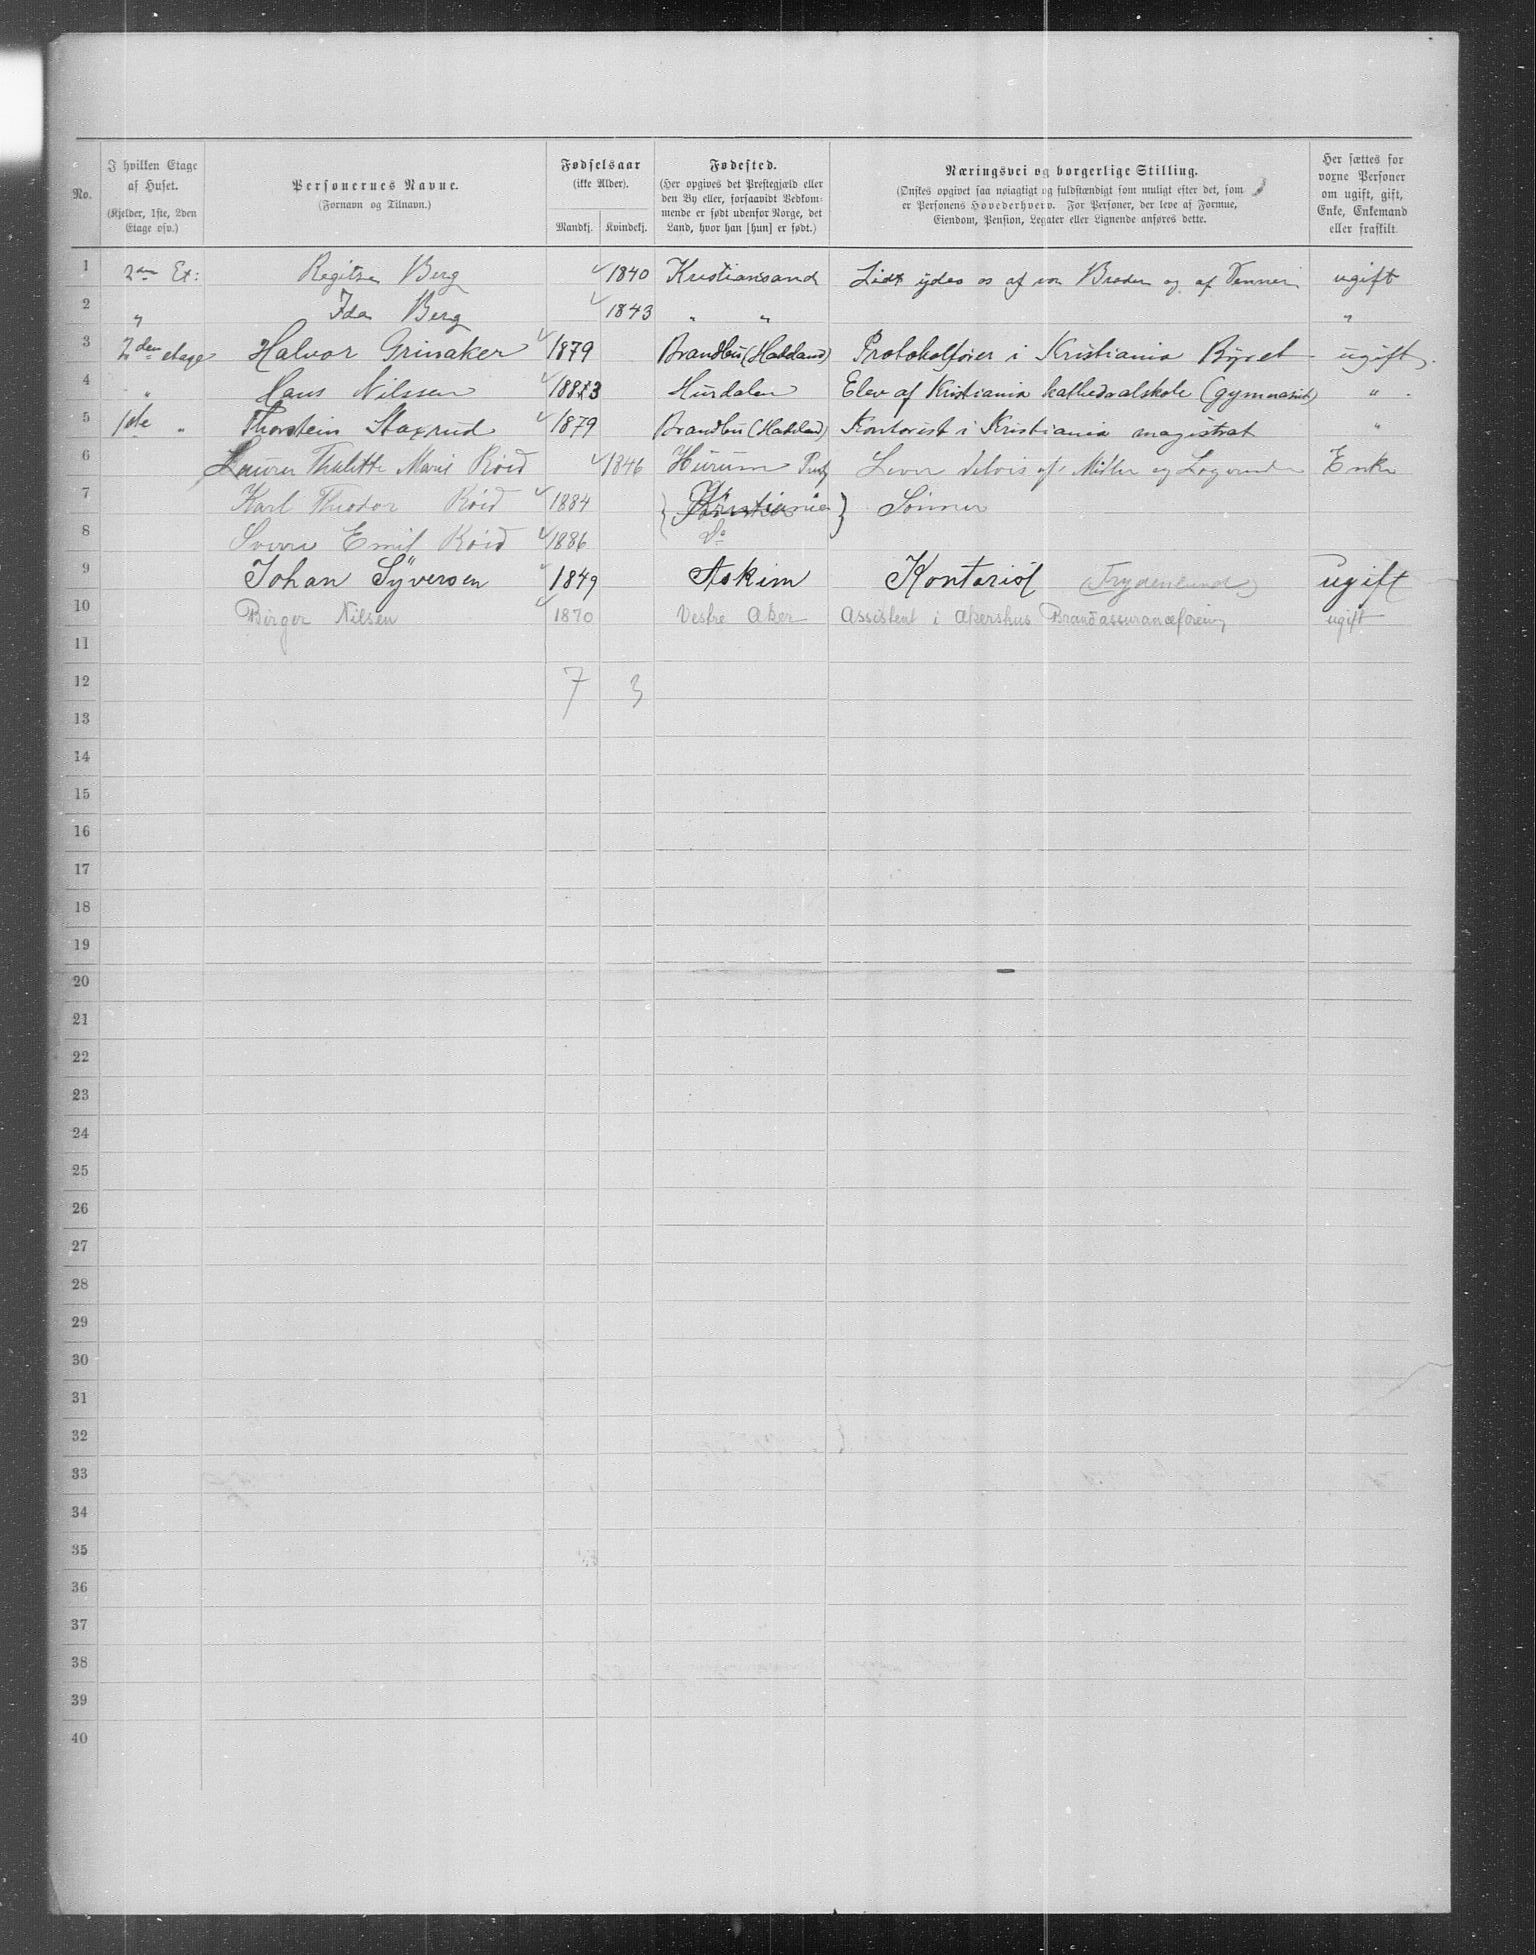 No. | I hvilken Etage af Huset. (Kjelder, 1ste, 2den Etage osv.) | Personernes Navne. (Fornavn og Tilnavn.) | Fødselsaar (ikke Alder). Mandkj. | Kvindekj. | Fødested. (Her opgives det Prestegjæld eller den By eller, forsaavidt Vedkommende er født udenfor Norge, det Land, hvor han [hun] er født.) | Næringsvei og borgerlige Stilling. (Ønskes opgivet saa nøiagtigt og fuldstændigt som muligt efter det, som er Personens Hovederhverv. For Personer, der leve af Formue, Eiendom, Pension, Legater eller Lignende anføres dette.) | Her sættes for voxne Personer om ugift, gift, Enke, Enkemand eller fraskilt.
1 2den Et: Regitze Berg 1840 Kristiansand Lidt ydes os af vor Broder og af Venner ugift
2 " Ida Berg 1843 " " "
3 2den etage Halvor Grinaker 1879 Brandbu (Hadeland) Protokolfører i Kristiania Byret ugift
4 " Hans Nilssen 1883 Hurdalen Elev af Kristiania kathedralskole (gymnasiet) "
5 1ste " Thorstein Staxrud 1879 Brandbu (Hadeland) Kontorist i Kristiania magistrat "
6 Laura Thalette Marie Röed 1846 Hurum Lever delvis af Midler og Logerende Enke
7 Karl Theodor Röed 1884 Kristiania Sönner
8 Sverre Emil Röed 1886 Do
9 Johan Syversen 1849 Askim Kontorist (Frydenlund) ugift
10 Birger Nilsen 1870 Vestre Aker Assistent i Akershus Brandassuranceforening ugift
11
12 7 3
13
14
15
16
17
18
19
20
21
22
23
24
25
26
27
28
29
30
31
32
33
34
35
36
37
38
39
40